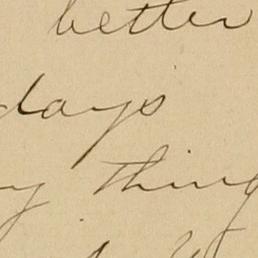 better
days
thing